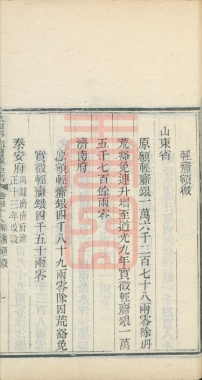 輕齎額徵
山東省
原額輕齎銀一萬六千三百七十八兩零除坍
荒豁免連升增至道光九年實徵輕齎銀一萬
五千七百餘兩零
濟南府
原額輕齎銀四千八十九兩零除因荒豁免
實徵輕齎銀四千五十兩零
泰安府